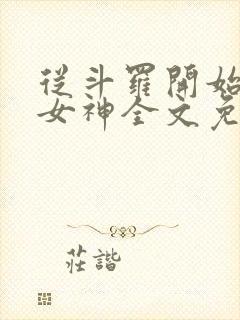 從斗羅開始
女神全文免
莊諧